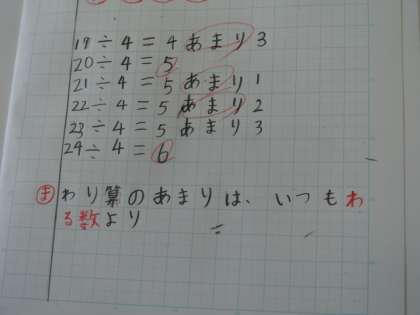 19÷4=4あまり3
20÷4=5
21÷4=5あまり1
22÷4=5あまり2
23÷4=5あまり3
24÷4=6
ま わり算のあまりは、いつもわ
る数より